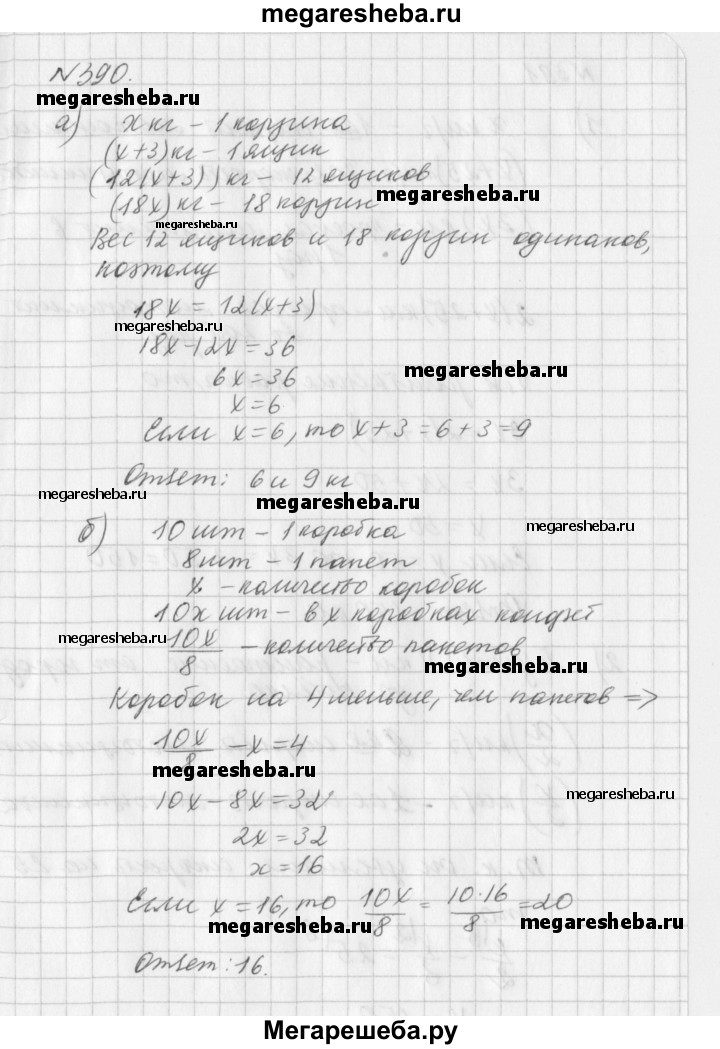 megaresheba.ru
N390.
megaresheba.ru
а) x кг – 1 корзина
(x+3) кг – 1 ящик
(12(x+3)) кг – 12 ящиков
megaresheba.ru
(18x) кг – 18 корзин
megaresheba.ru
Вес 12 ящиков и 18 корзин одинаков,
поэтому
18x = 12(x+3)
megaresheba.ru
18x-12x=36
megaresheba.ru
6x=36
x=6
Если x=6, то x+3=6+3=9
Ответ: 6 и 9 кг
megaresheba.ru
б) 10 шт – 1 коробка
megaresheba.ru
8 шт – 1 пакет
x – количество коробок
10x шт – в x коробках конфет
megaresheba.ru
10x/8 – количество пакетов
megaresheba.ru
Коробок на 4 меньше, чем пакетов =>
10x/8 – x = 4
megaresheba.ru
10x – 8x = 32
megaresheba.ru
2x = 32
x = 16
Если x=16, то 10x/8 = 10·16/8 = 20
megaresheba.ru
megaresheba.ru
Ответ: 16.
Мегарешеба.ру